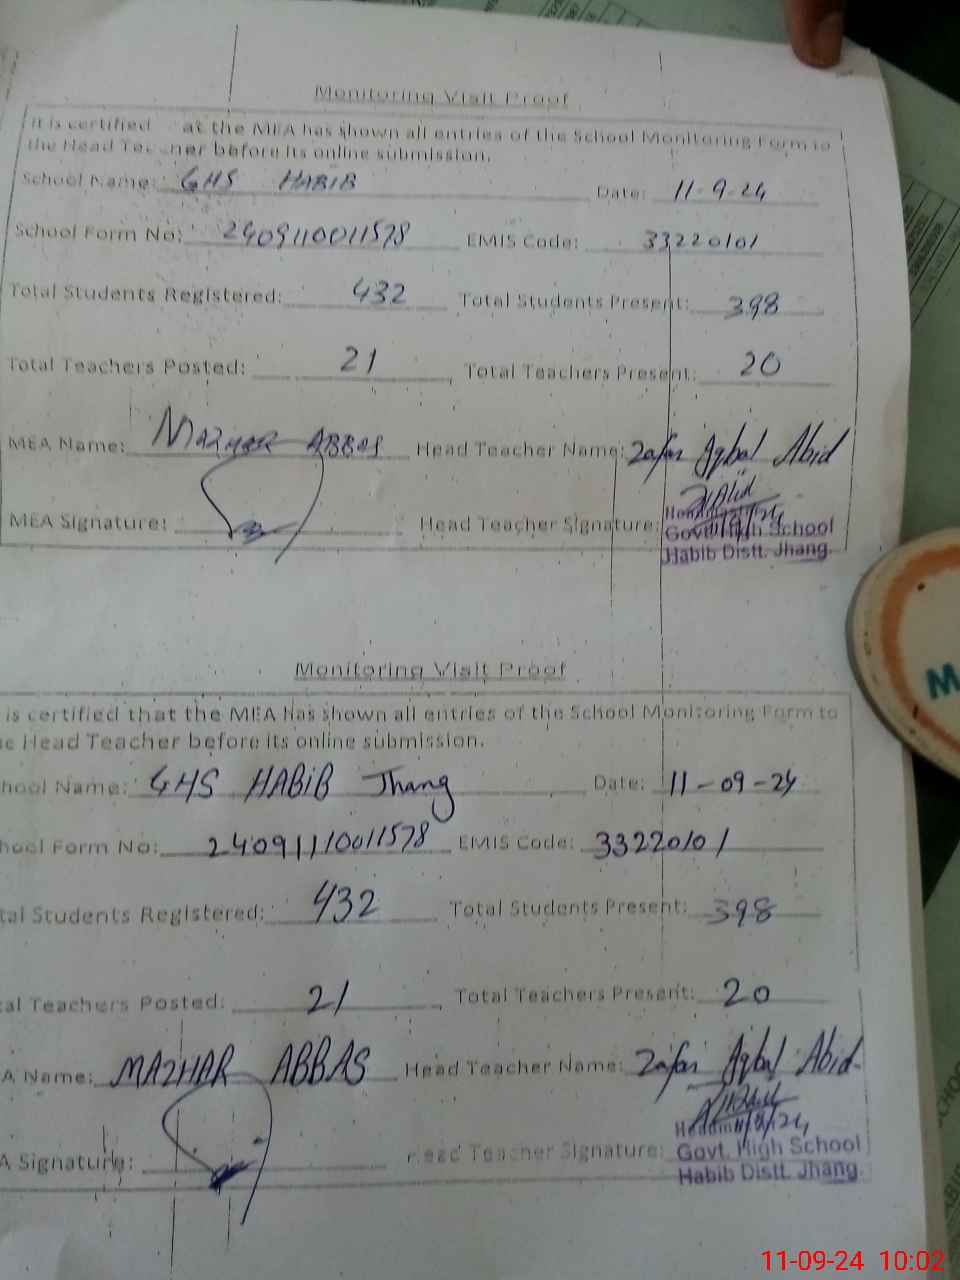 Monitoring Visit Proof
It is certified at the MEA has shown all entries of the School Monitoring Form to
the Head Teacher before its online submission.
School Name: GHS HABIB Date: 11-9-24
School Form No: 240911001578 EMIS Code: 33220101
Total Students Registered: 432 Total Students Present: 398
Total Teachers Posted: 21 Total Teachers Present: 20
MEA Name: MAZHAR ABBAS Head Teacher Name: Zafar Iqbal Abid
MEA Signature: Head Teacher Signature:
Govt. High School
Habib Distt. Jhang.
Monitoring Visit Proof
is certified that the MEA has shown all entries of the School Monitoring Form to
e Head Teacher before its online submission.
hool Name: GHS HABIB Jhang Date: 11-09-24
hool Form No: 24091110011578 EMIS Code: 33220101
tal Students Registered: 432 Total Students Present: 398
tal Teachers Posted: 21 Total Teachers Present: 20
A Name: MAZHAR ABBAS Head Teacher Name: Zafar Iqbal Abid
A Signature: Head Teacher Signature:
Govt. High School
Habib Distt. Jhang.
M
11-09-24 10:02